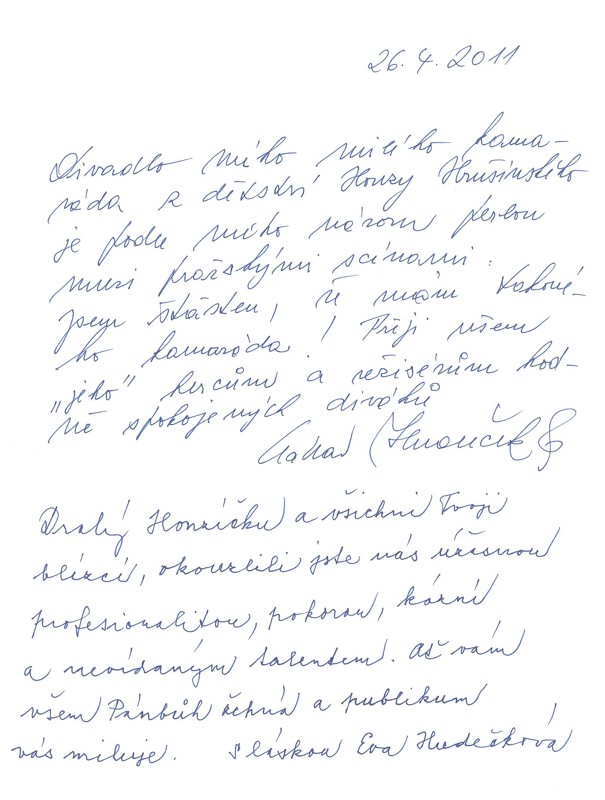 26. 4. 2011
Divadlo mého milého kama-
ráda z dětství Honzy Hrušínského
je podle mého názoru perlou
mezi pražskými scénami.
Jsem šťasten, že mám takové-
ho kamaráda! Přeji všem
„jeho" hercům a režisérům hod-
ně spokojených diváků
Drahý Honzíčku a všichni Tvoji
blízcí, okouzlili jste nás úžasnou
profesionalitou, pokorou, kázní
a nevídaným talentem. Ať vám
všem Pánbůh žehná a publikum
vás miluje. S láskou Eva Hudečková